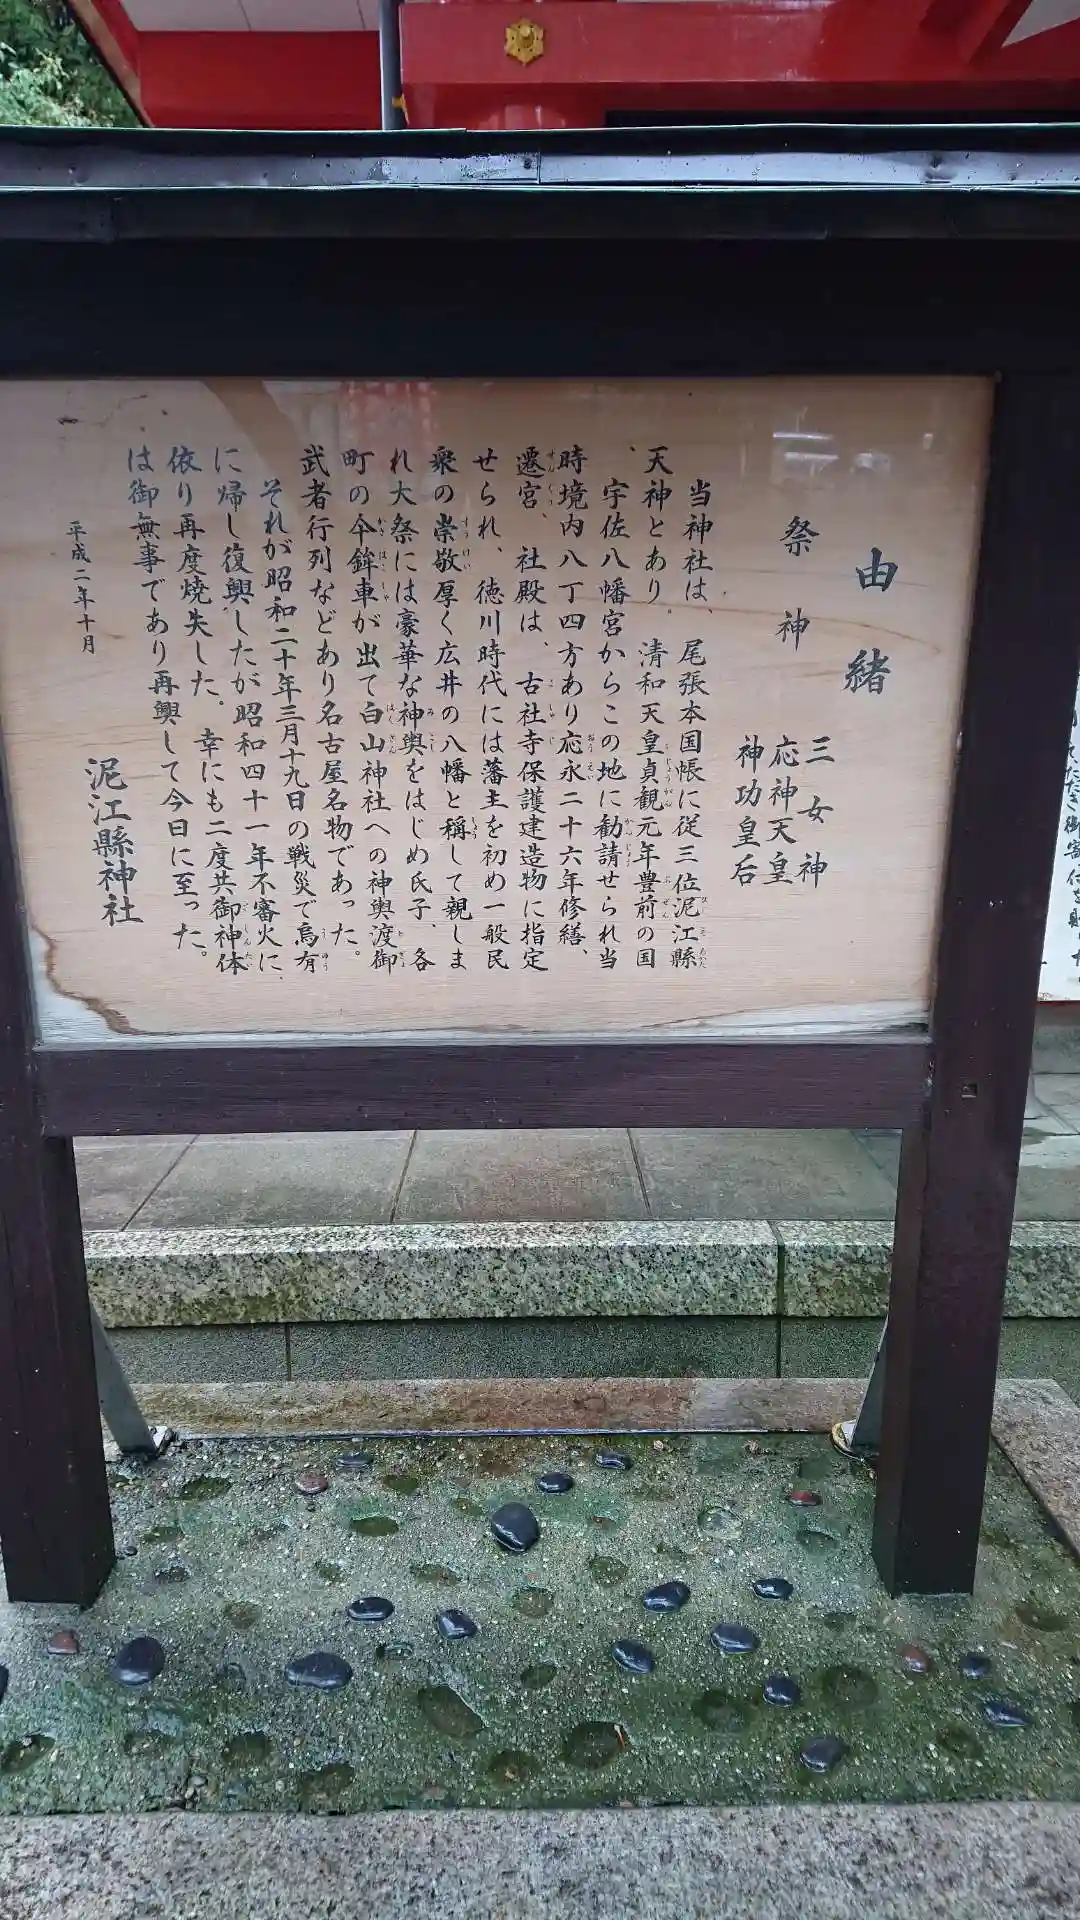 由緒
祭神
三女神
応神天皇
神功皇后
当神社は、尾張本国帳に従三位泥江縣
天神とあり。清和天皇貞観元年豊前の国
、宇佐八幡宮からこの地に勧請せられ当
時境内八丁四方あり応永二十六年修繕、
遷宮、社殿は、古社寺保護建造物に指定
せられ、徳川時代には藩主を初め一般民
衆の崇敬厚く広井の八幡と稱して親しま
れ大祭には豪華な神輿をはじめ氏子、各
町の傘鉾車が出て白山神社への神輿渡御
武者行列などあり名古屋名物であった。
それが昭和二十年三月十九日の戦災で烏有
に帰し復興したが昭和四十一年不審火に、
依り再度焼失した。幸にも二度共御神体
は御無事であり再興して今日に至った。
平成二年十月
泥江縣神社